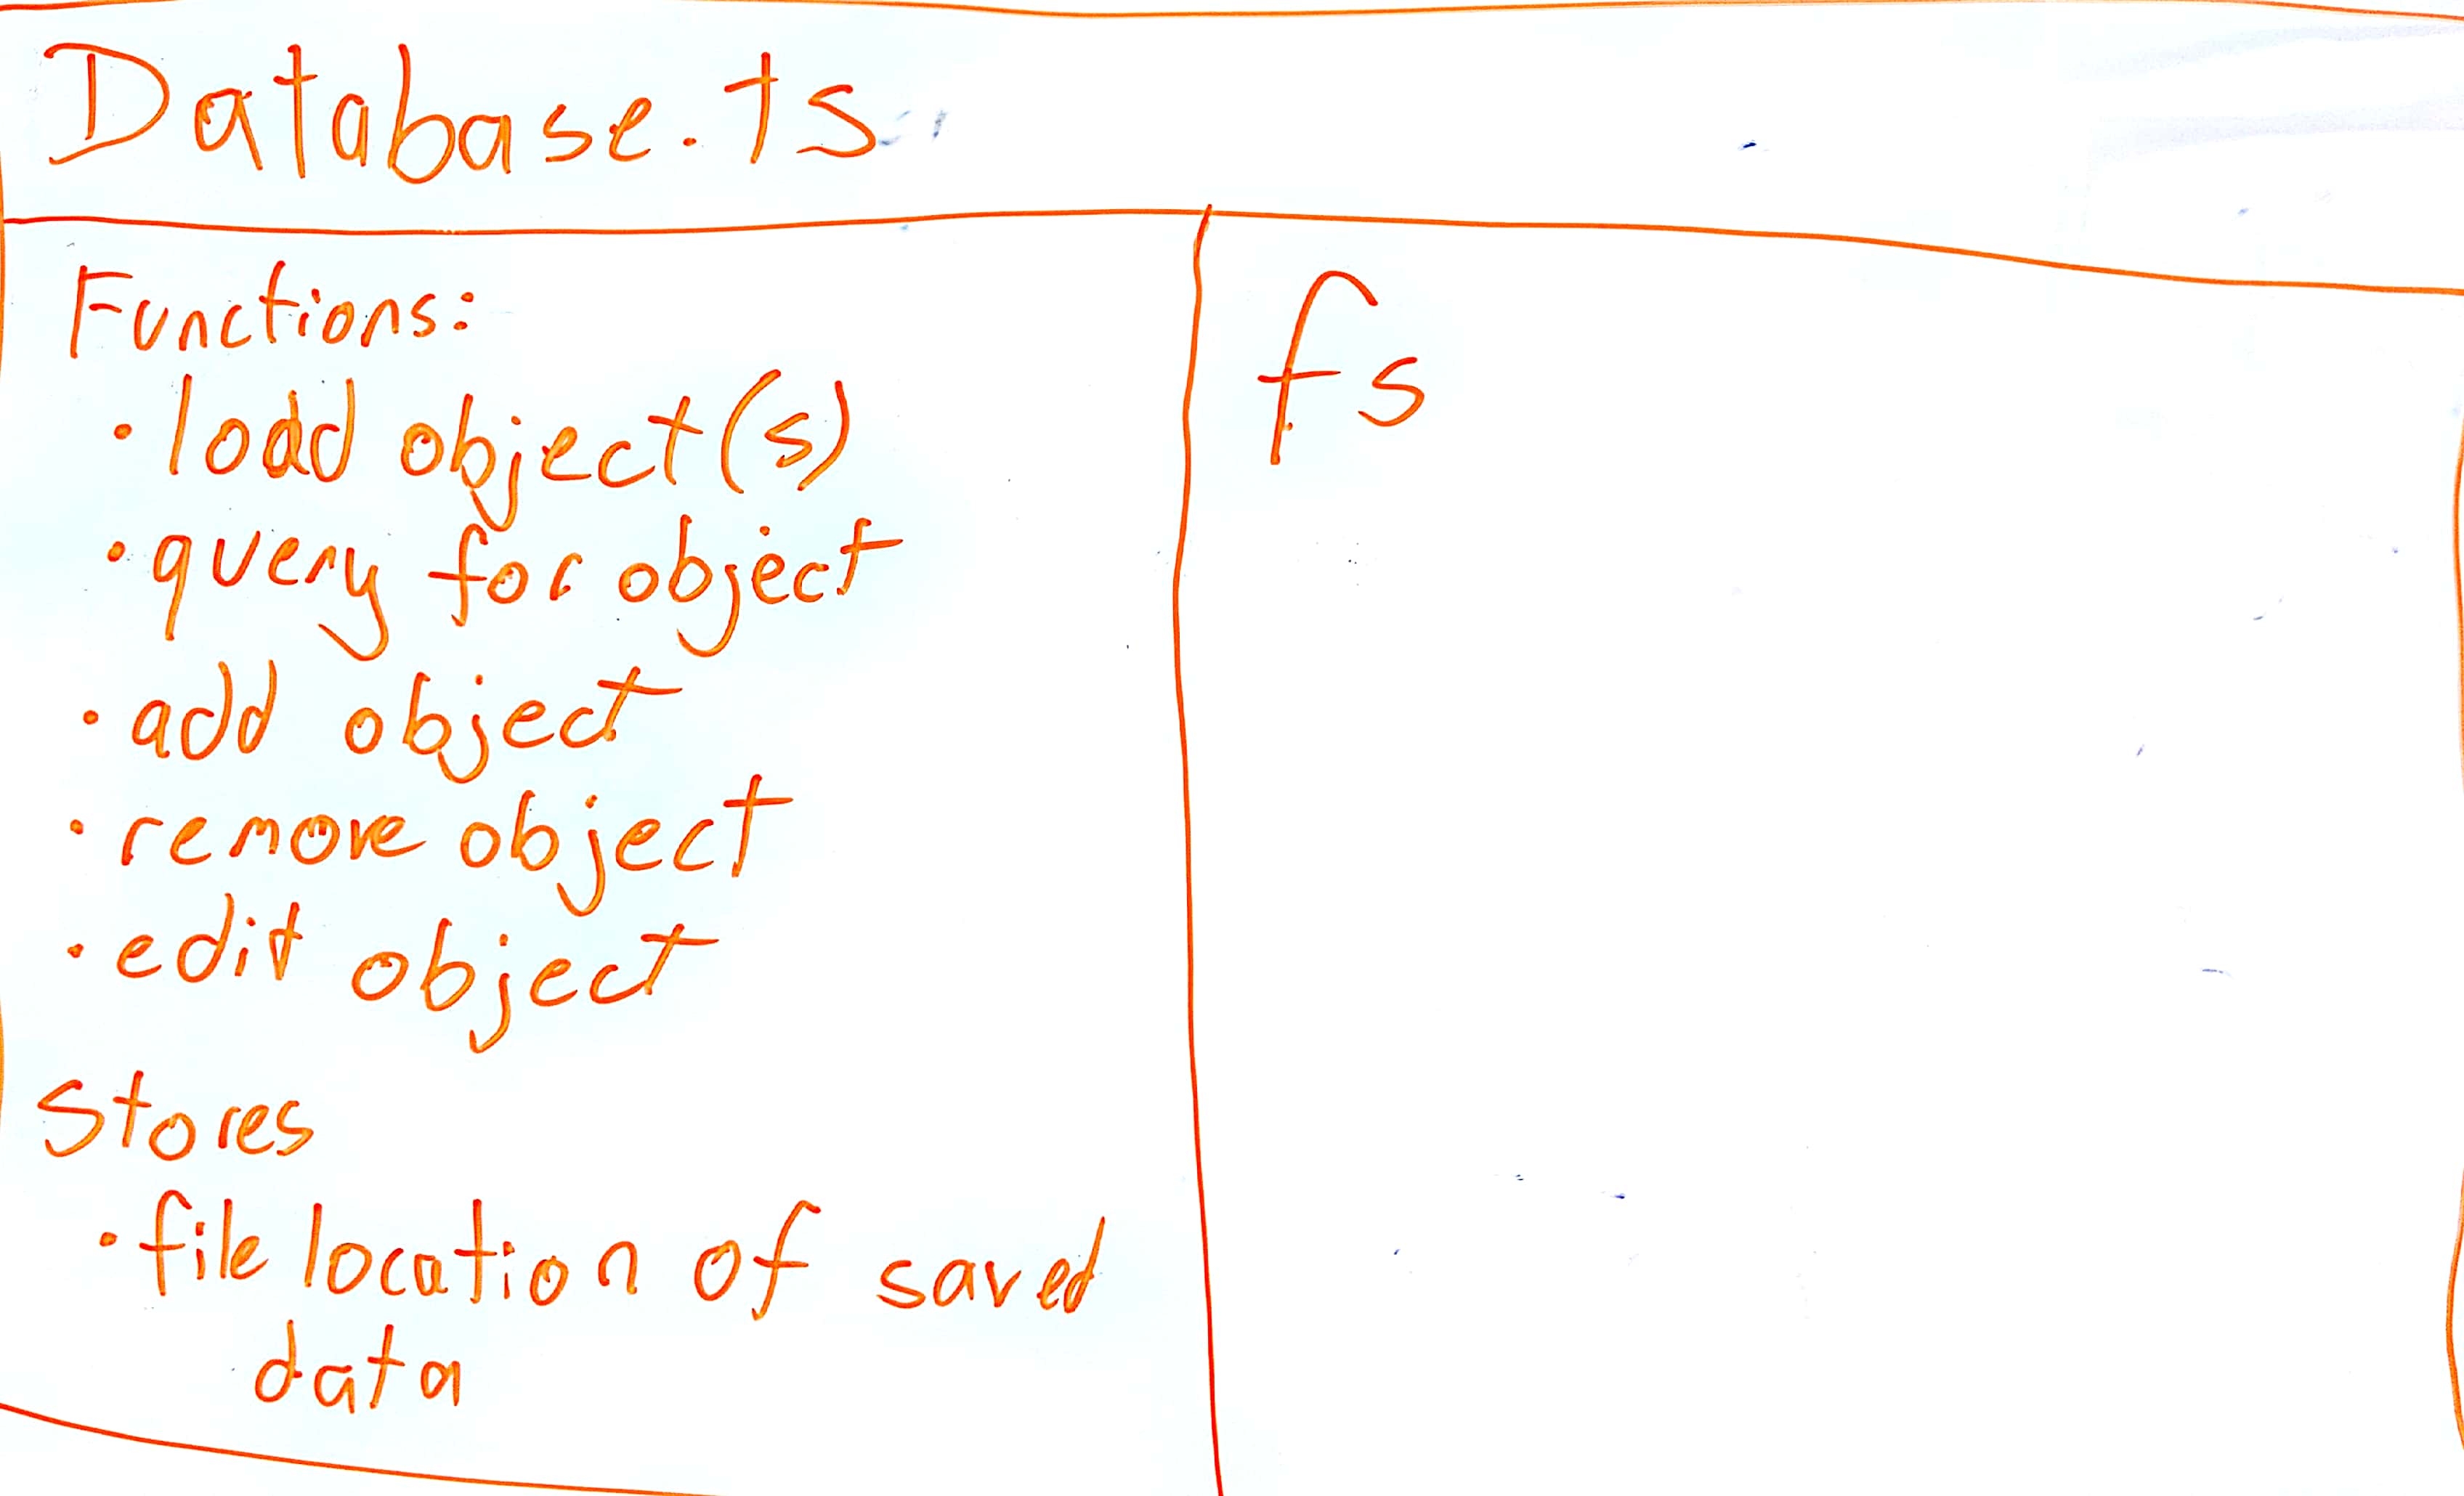 Database.ts
Functions:
• load object(s)
• query for object
• add object
• remove object
• edit object
Stores
• file location of saved
data
fs